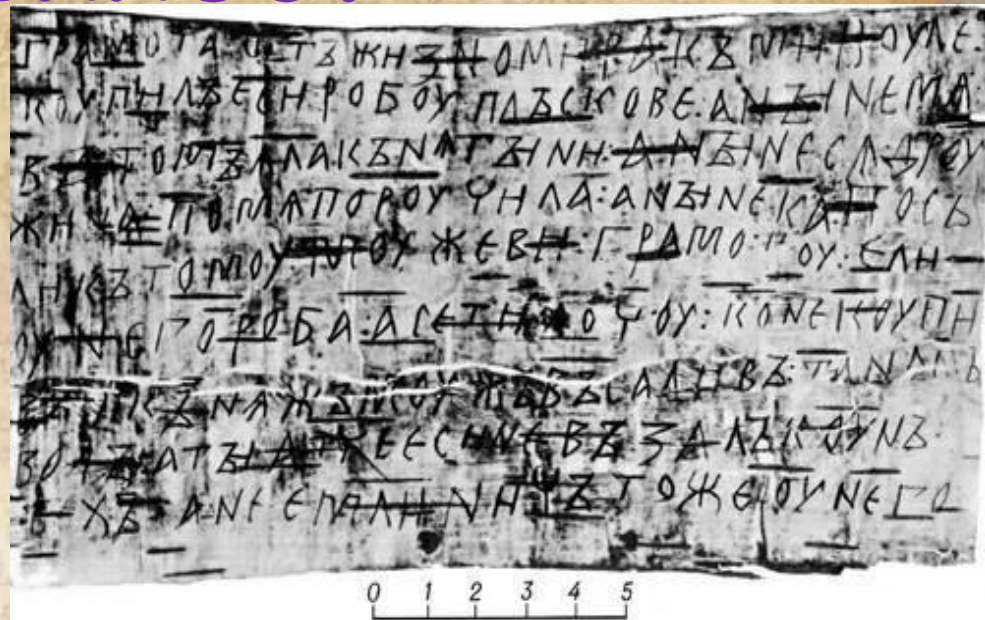 ГРАМОТА ѠТЪ ЖИЗНОМИРА КЪ МИКОУЛЕ:
КОУПИЛЪ ЕСИ РОБОУ ПЛЪСКОВЕ: А НЪІНЕ МѦ
ВЪ ТОМЪ ѦЛА КЪНѦГЪІНИ: А НЪІНЕ СѦ ДРОУ
ЖИНА: ПО МѦ ПОРОУЧИЛА: А НЪІНЕ КА ПОСЪ
ЛИ КЪ ТОМОУ: МОУЖЕВИ: ГРАМОТОУ: Е ЛИ
ОУ НЕГО РОБА: А СЕ ТИ ХОЧОУ: КОНЕ КОУПИ
ВЪ И КЪНѦЖЪ МОУЖЪ ВЪСАДИВЪ: ТА НА СЪ
ВОДЪІ А ТЪІ АТЧЕ ЕСИ НЕ ВЪЗАЛЪ КОУНЪ
ТЕХЪ А НЕ ЕМЛИ НИЧЪТО ЖЕ ОУ НЕГО
0 1 2 3 4 5